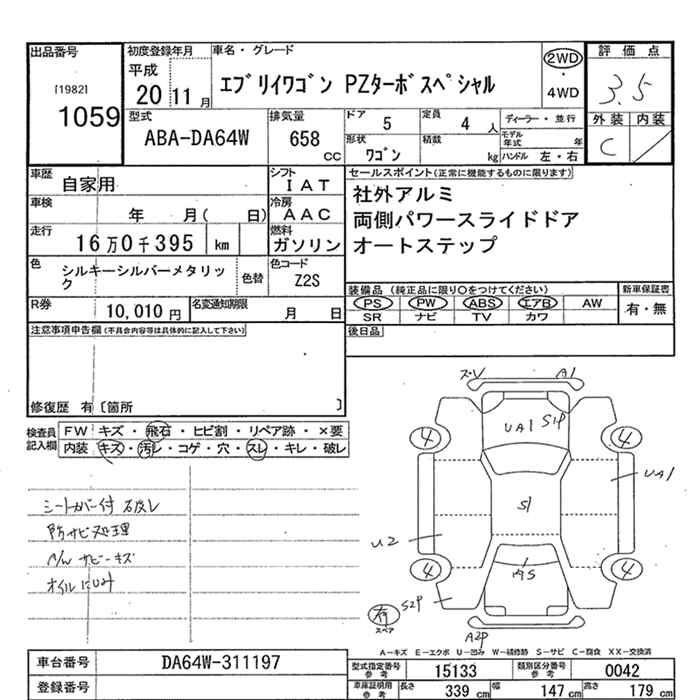 出品番号 初度登録年月 車名・グレード 評価点
[1982]
1059
平成
20 11月
エブリイワゴン PZターボスペシャル
2WD
・
4WD
3.5
外装 内装
C
型式 排気量 ドア 定員 ディーラー・並行
ABA-DA64W 658 CC 5 4 人
モデル年式 年
形状 積載
ワゴン kg ハンドル 左・右
車歴 自家用 シフト IAT セールスポイント(正常に機能するものに限ります)
車検 年 月( 日) 冷房 AAC
社外アルミ
両側パワースライドドア
オートステップ
走行 16万0千395 km 燃料 ガソリン
色 シルキーシルバーメタリック 色替 色コード Z2S
装備品 (純正品に限り○をつけてください) 新車保証書
PS PW ABS エアB AW 有・無
SR ナビ TV カワ
R券 10,010円 名変通知期限 月 日
後日品
注意事項申告欄(不具合内容等は具体的に記入して下さい)
修復歴 有〔箇所 〕
検査員記入欄 FW キズ・飛石・ヒビ割・リペア跡・×要
内装 キズ・汚レ・コゲ・穴・スレ・キレ・破レ
防サビ処理
オイルにじみ
A1
UA1 S1P
4 4
UA1
S1
U2
4 4
S2P
有
スペア
A2P
A-キズ E-エクボ U-凹み W-補修跡 S-サビ C-腐食 XX-交換済
車台番号 DA64W-311197
登録番号
型式指定番号 参考 15133 類別区分番号 参考 0042
車庫証明用 参考 長さ 339 cm 幅 147 cm 高さ 179 cm